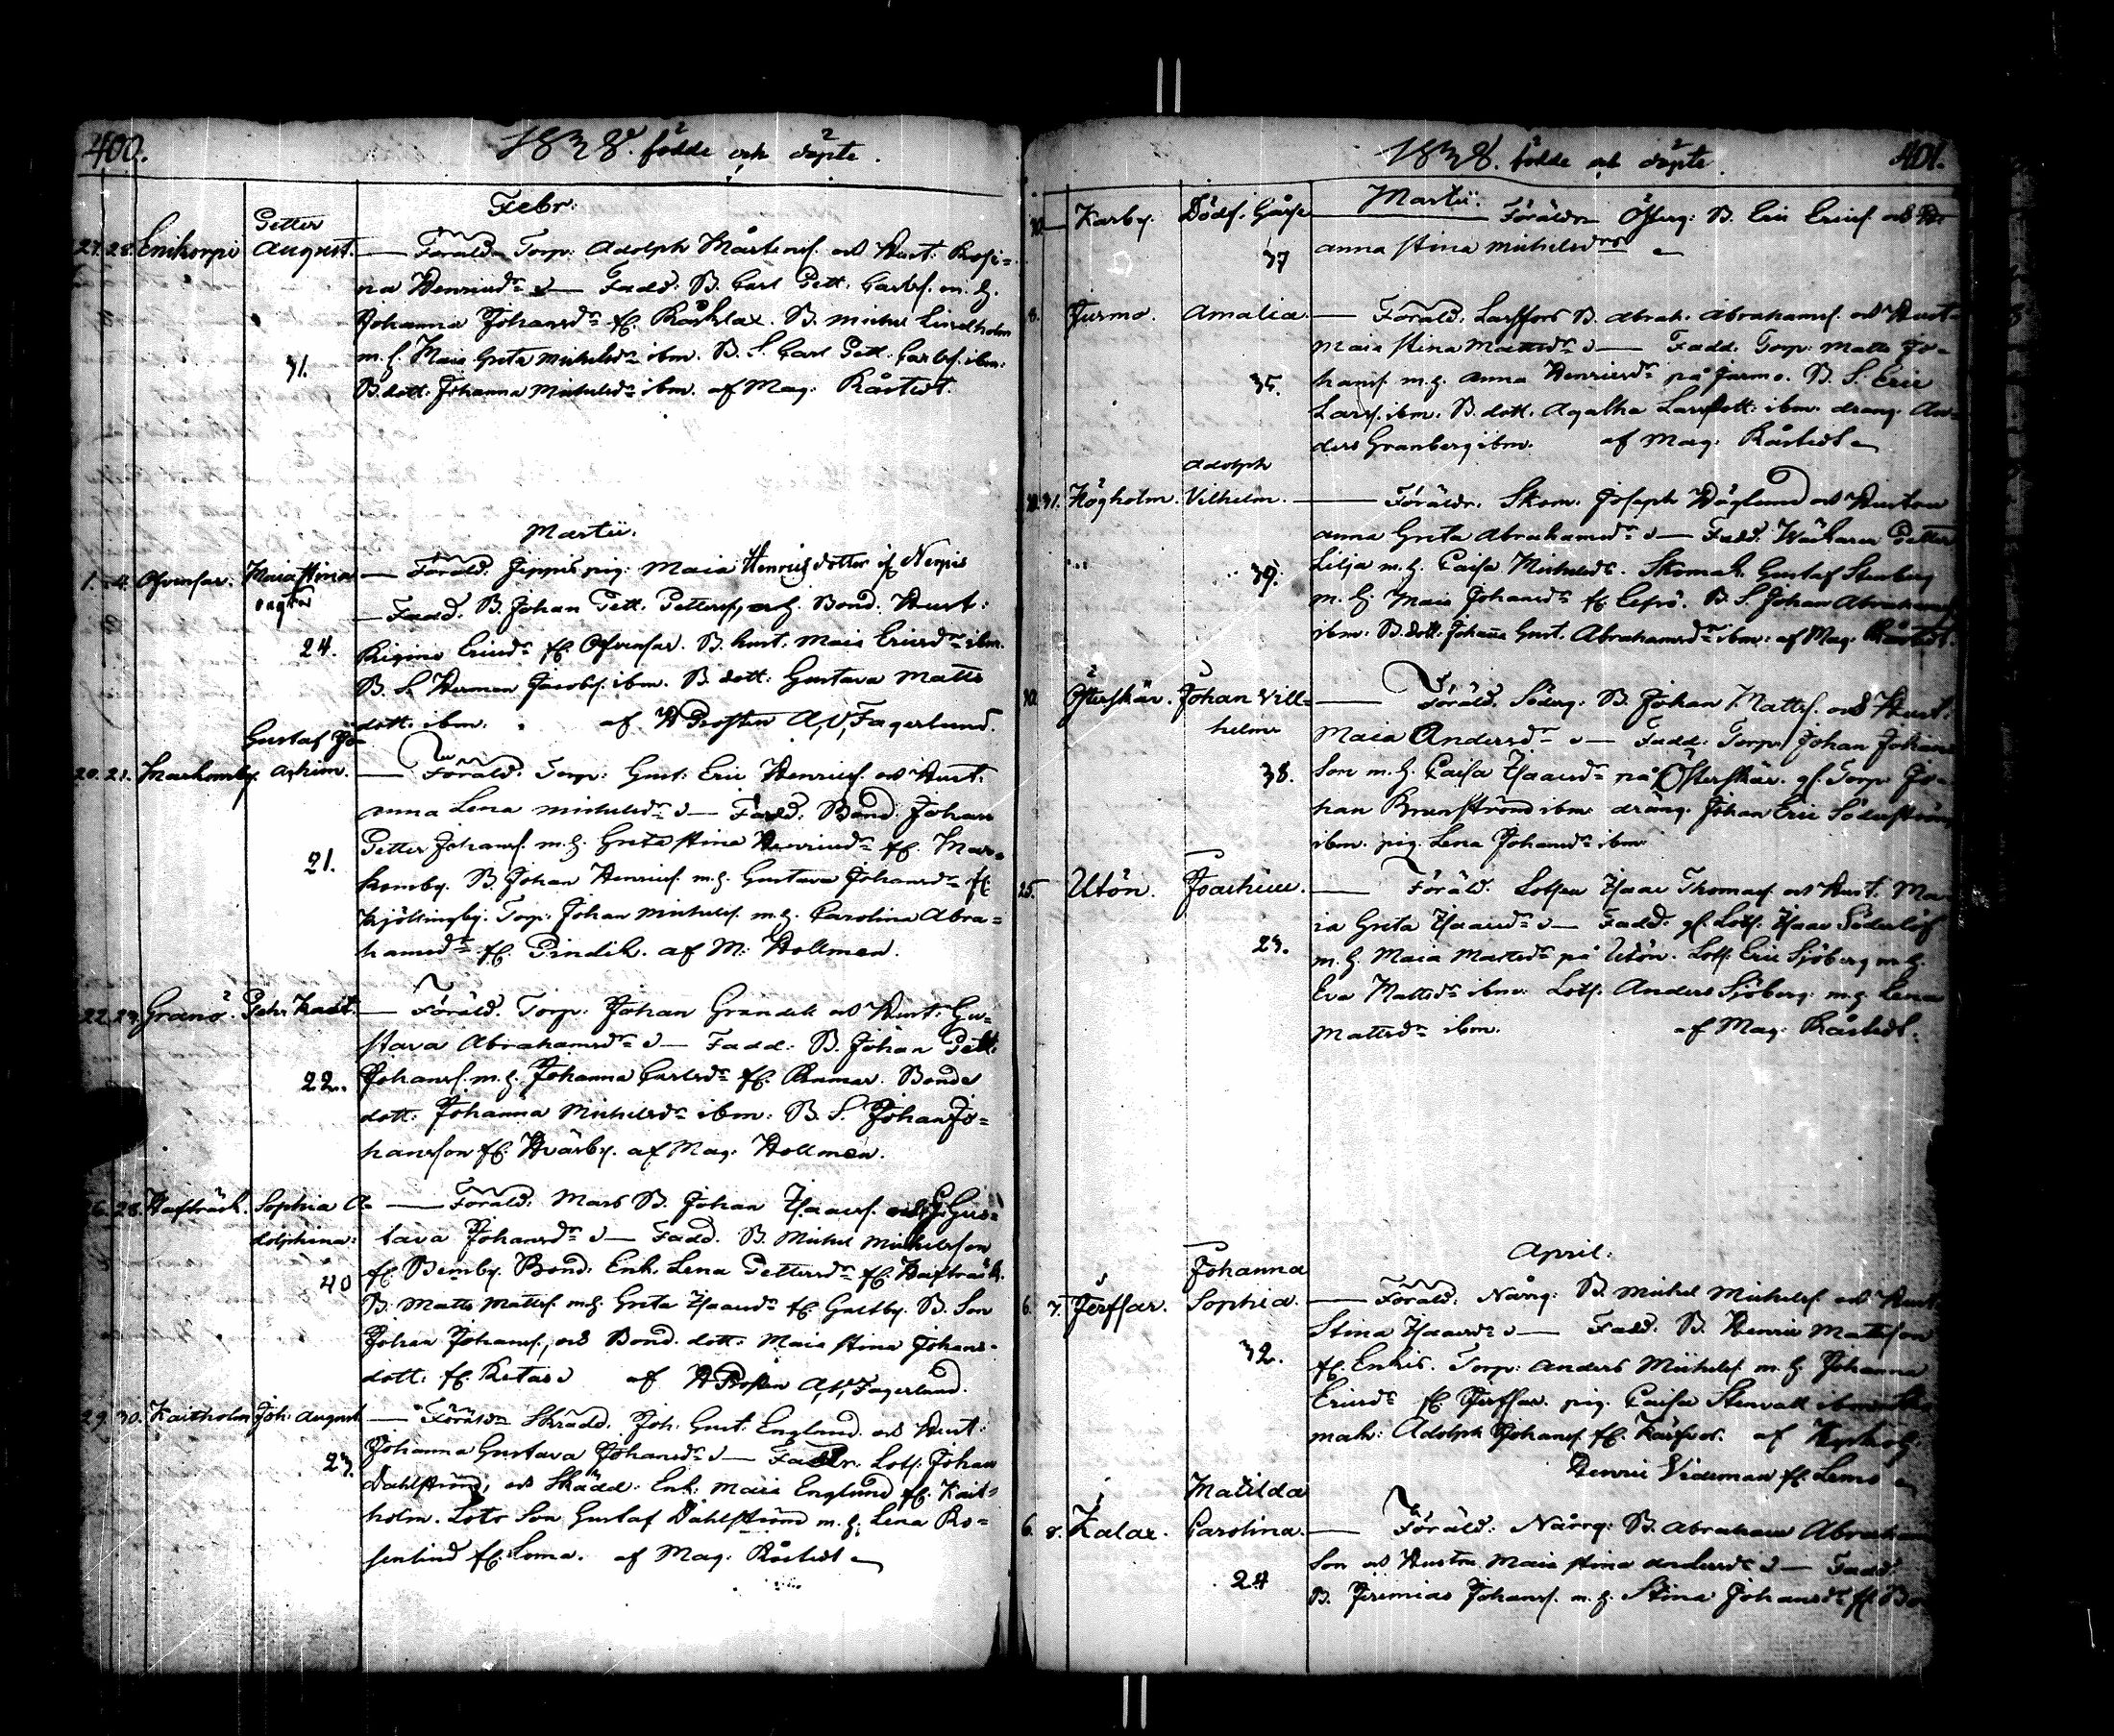 400.
1838. födde och döpte.
Febr:
Petter
27. 28. Enikorpi August. — Föräld. Torp: Adolph Mårtensf. och Hust: Rosi=
na Henricsdr — Fadd: B. Carl Pett. Carlsf. m. h.
Johanna Johansdr fr. B. Michel Lindholm
m. h. Maia Greta Michelsdr ibm. B. S. Carl Pett. Carlsf. ibm:
31.
B. dott. Johanna Michelsdr ibm. af Mag: Råstedt.
Martii.
1. 4. Ofvensar. Maia Stina — Föräld: pig: Maia Henrics dotter if
oagta — Fadd: B. Johan Pett. Petterss, och Bond. Hust:
24. Regina Ericsdr fr. Ofvensar. B. hust. Maia Ericsdr ibm.
B. S. Herman Jacobsf. ibm. B. dott: Gustava Matts
dott: ibm. af H Prosten A, V, Fagerlund.
Gustaf Jo=
20. 21. Markomby. achim. — Föräld: Torp: Gust: Eric Henricsf. och Hust:
Anna Lena Michelsdr — Fadd: Bond. Johan
Petter Johansf. m. h. Greta Stina Henricsdr fr. Mar=
21.
komby. B. Johan Henricsf. m. h. Gustava Johansdr fr.
Kjöllingby. Torp: Johan Michelsf. m. h. Carolina Abra=
hamsdr fr. Pindik. af M: Hollmen.
22. 23. Granö. Pehr — Föräld. Torp: Johan Grandell och Hust: Gu=
stava Abrahamsdr — Fadd: B. Johan Pett.
22. Johansf. m. h. Johanna Carlsdr fr. Bonde
dott. Johanna Michelsdr ibm: B. S. Johan Jo=
hansson fr. af Mag: Hollmen.
26. 28. Hafträsk. Sophia A= — Föräld: B. Johan Isaacsf. och H. Gus=
dolphina: tava Johansdr — Fadd. B. Michel Michelsson
40 fr. Bemby. Bond: Enk. Lena Pettersdr fr. Hafträsk.
B. Matts Mattsf. m. h. Greta Isaacsdr fr. Galtby. B. Son
Johan Johansf., och Bond. dott: Maia Stina Johans=
dott: fr. Retais af H Prosten A, V, Fagerlund.
29. 30. Kaitholm Joh: August — Föräldr Skrädd. Joh: Gust: Englund och Hust:
Johanna Gustava Johansdr — Faddr. Lots: Johan
23.
Dahlström, och Skrädd: Enk: Maia Englund fr. Kait=
holm. Lots Son Gustaf Dahlström m. h. Lena Ro=
senlind fr. Loma. af Mag: Råstedt
1838. födde och döpte. 401.
Martii.
Karby. Dödf. Gåsse — Föräldr Österg: B. Eric Ericsf. och H.
37 Anna Stina Michelsdr
8. Jurmo. Amalia. — Föräld. Larssfors B. Abrah. Abrahamsf. och Hust.
Maia Stina Mattsdr — Fadd: Torp: Matts Jo=
35. hansf. m. h. Anna Henricsdr på Jurmo. B. S. Eric
Larsf. ibm. B. dott. Agatha Larsdott: ibm. dräng. An=
ders Granberg ibm. af Mag: Råstedt
Adolph
31. Högholm. Vilhelm. — Föräldr. Skom: Joseph Höglund och Hustru
Anna Greta Abrahamsdr — Fadd. Petter
39. Lilja m. h. Caisa Michelsdr. Skomak. Gustaf Stenberg
m. h. Maia Johansdr fr. B. S. Johan Abrahamsf.
ibm: B. dott: Johanna Gust. Abrahamsdr ibm: af Mag: Råstedt.
Österskär. Johan Vill= — Föräld. Söderg: B. Johan Mattsf. och Hust.
helm Maia Andersdr — Fadd: Torp: Johan Johans
38. Son m. h. Caisa Isaacsdr på Österskär. gl. Torp. Jo=
han Brunström ibm. dräng. Johan Eric Söderström
ibm. pig. Lena Johansdr ibm
25. Utön. Joachim. — Föräld: Lotsen Isaac Thomasf. och Hust. Ma=
ria Greta Isaacsdr — Fadd: gl. Lots: Isaac Söderlöf
23. m. h. Maia Mattsdr på Utön. Lots. Eric Sjöberg m. h.
Eva Mattsdr ibm: Lots. Anders Sjöberg: m. h. Lena
Mattsdr ibm. af Mag: Råstedt.
April:
Johanna
6. 7. Jerfsar. Sophia. — Föräld. Någ: B. Michel Michelsf. och Hust:
Stina Isaacsdr — Fadd. B. Henric Mattsson
32. fr. Enkis. Torp: Anders Michelsf. m. h. Johanna
Ericsdr fr. Jerfsar. pig. Caisa Stenvall ibm.
mak: Adolph Johansf. fr. af
Henric Videman fr. Lems
Matilda
6. 8. Kalax. Carolina. — Föräld: B. Abraham Abraham
son och Hustru Maia Stina Andersdr — Fadd.
24 B. Jeremias Johansf. m. h. Stina Johansdr fr.